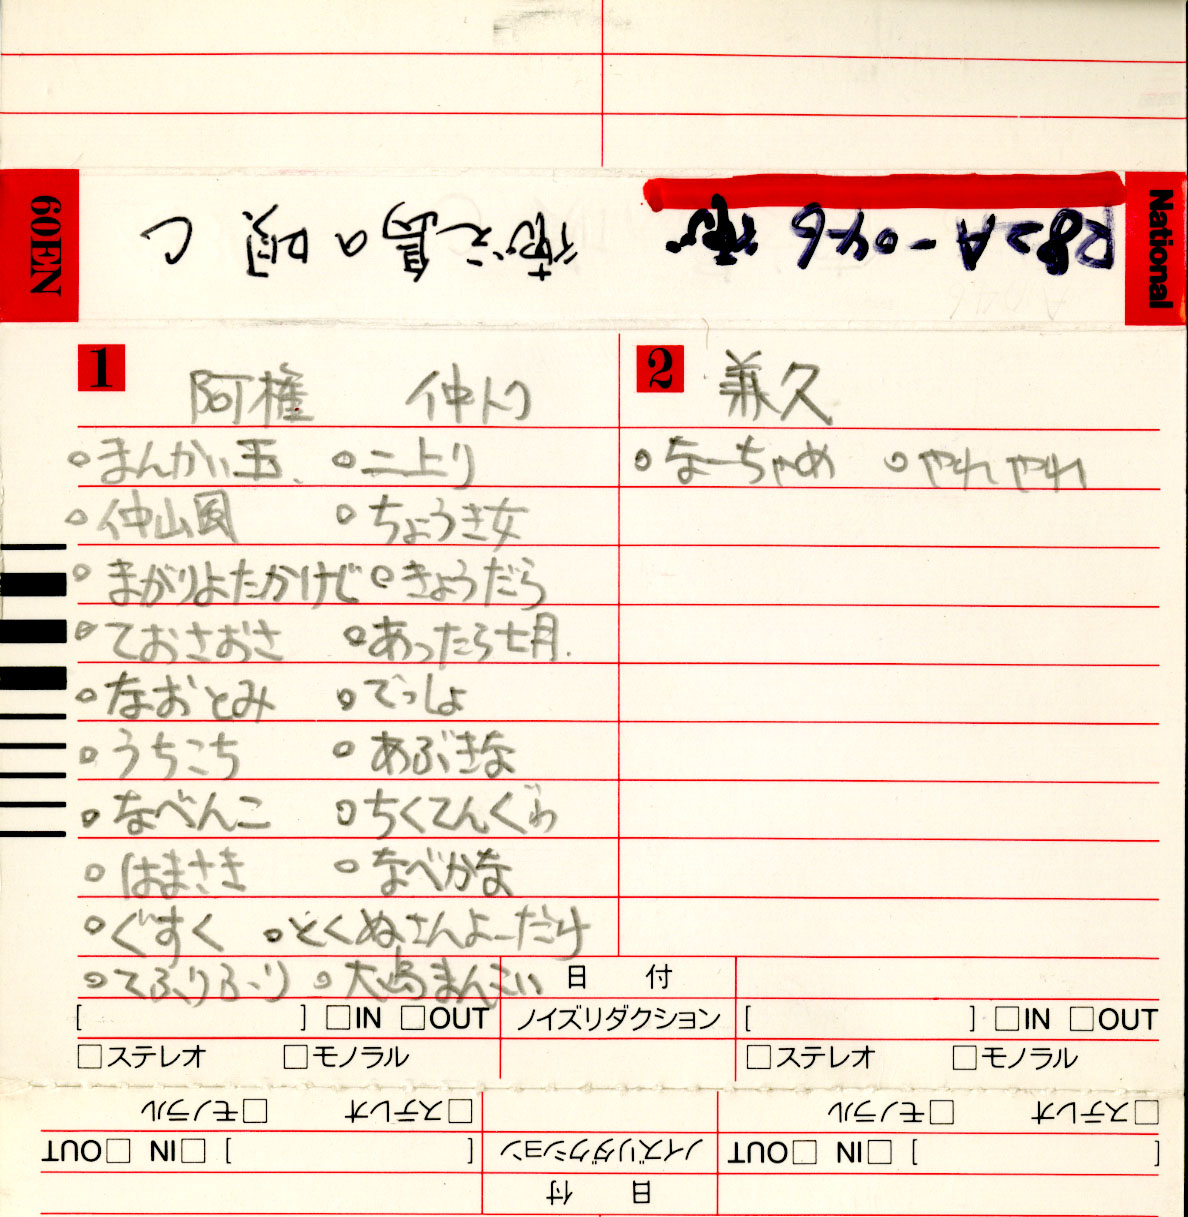 60EN
徳之島の唄 C
R82A-046 徳
National
1 阿権 仲トク
2 兼久
まんかい玉 二上り
なーちゃめ やれやれ
仲山風 ちょうき女
まがりよたかけじ きょうだら
ておさおさ あったら七月
なおとみ でっしょ
うちこち あぶきな
なべんこ ちくてんぐゎ
はまさき なべかな
ぐすく とくぬさんよーだけ
てふりふり 大島まんこい
日 付
[ ] □IN □OUT ノイズリダクション [ ] □IN □OUT
□ステレオ □モノラル □ステレオ □モノラル
□ステレオ □モノラル □ステレオ □モノラル
[ ] □IN □OUT ノイズリダクション [ ] □IN □OUT
日 付